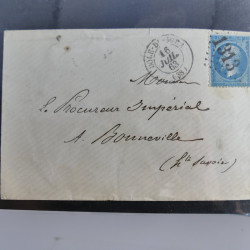 16
JUIL
1313
Monsieur
le Procureur Impérial
A Bonneville
(hte Savoie)